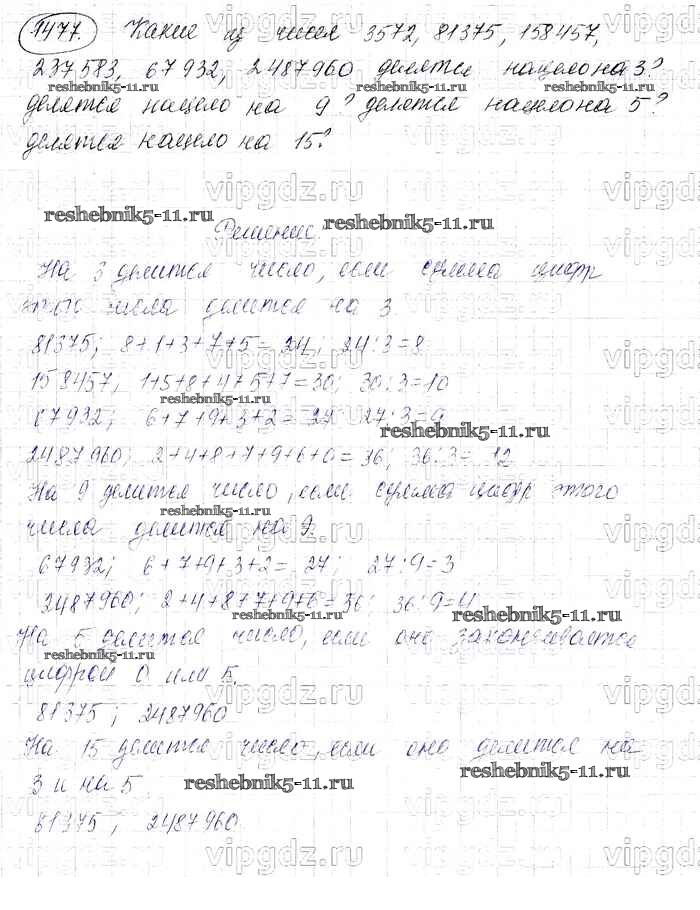 1477. Какие из чисел 3572, 81375, 158457,
237583, 67932, 2487960 делятся нацело на 3?
делятся нацело на 9? делятся нацело на 5?
делятся нацело на 15?
Решение.
На 3 делится число, если сумма цифр
этого числа делится на 3.
81375; 8+1+3+7+5=24; 24:3=8
158457; 1+5+8+4+5+7=30; 30:3=10
67932; 6+7+9+3+2=27 27:3=9
2487960; 2+4+8+7+9+6+0=36; 36:3=12
На 9 делится число, если сумма цифр этого
числа делится на 9.
67932; 6+7+9+3+2=27; 27:9=3
2487960; 2+4+8+7+9+6=36; 36:9=4
На 5 делится число, если оно заканчивается
цифрой 0 или 5.
81375; 2487960
На 15 делится число, если оно делится на
3 и на 5.
81375; 2487960.
reshebnik5-11.ru
vipgdz.ru